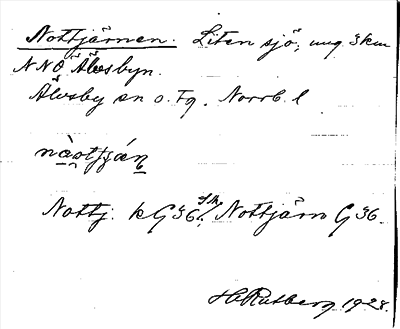 Nottjärnen. Liten sjö, ung 3 km
NNO Älvsbyn.
Älvsby sn o. Fg. Norrb. l
nàotján
Nottj. kG36. / Nottjärn G36.
H Rutberg 1928.